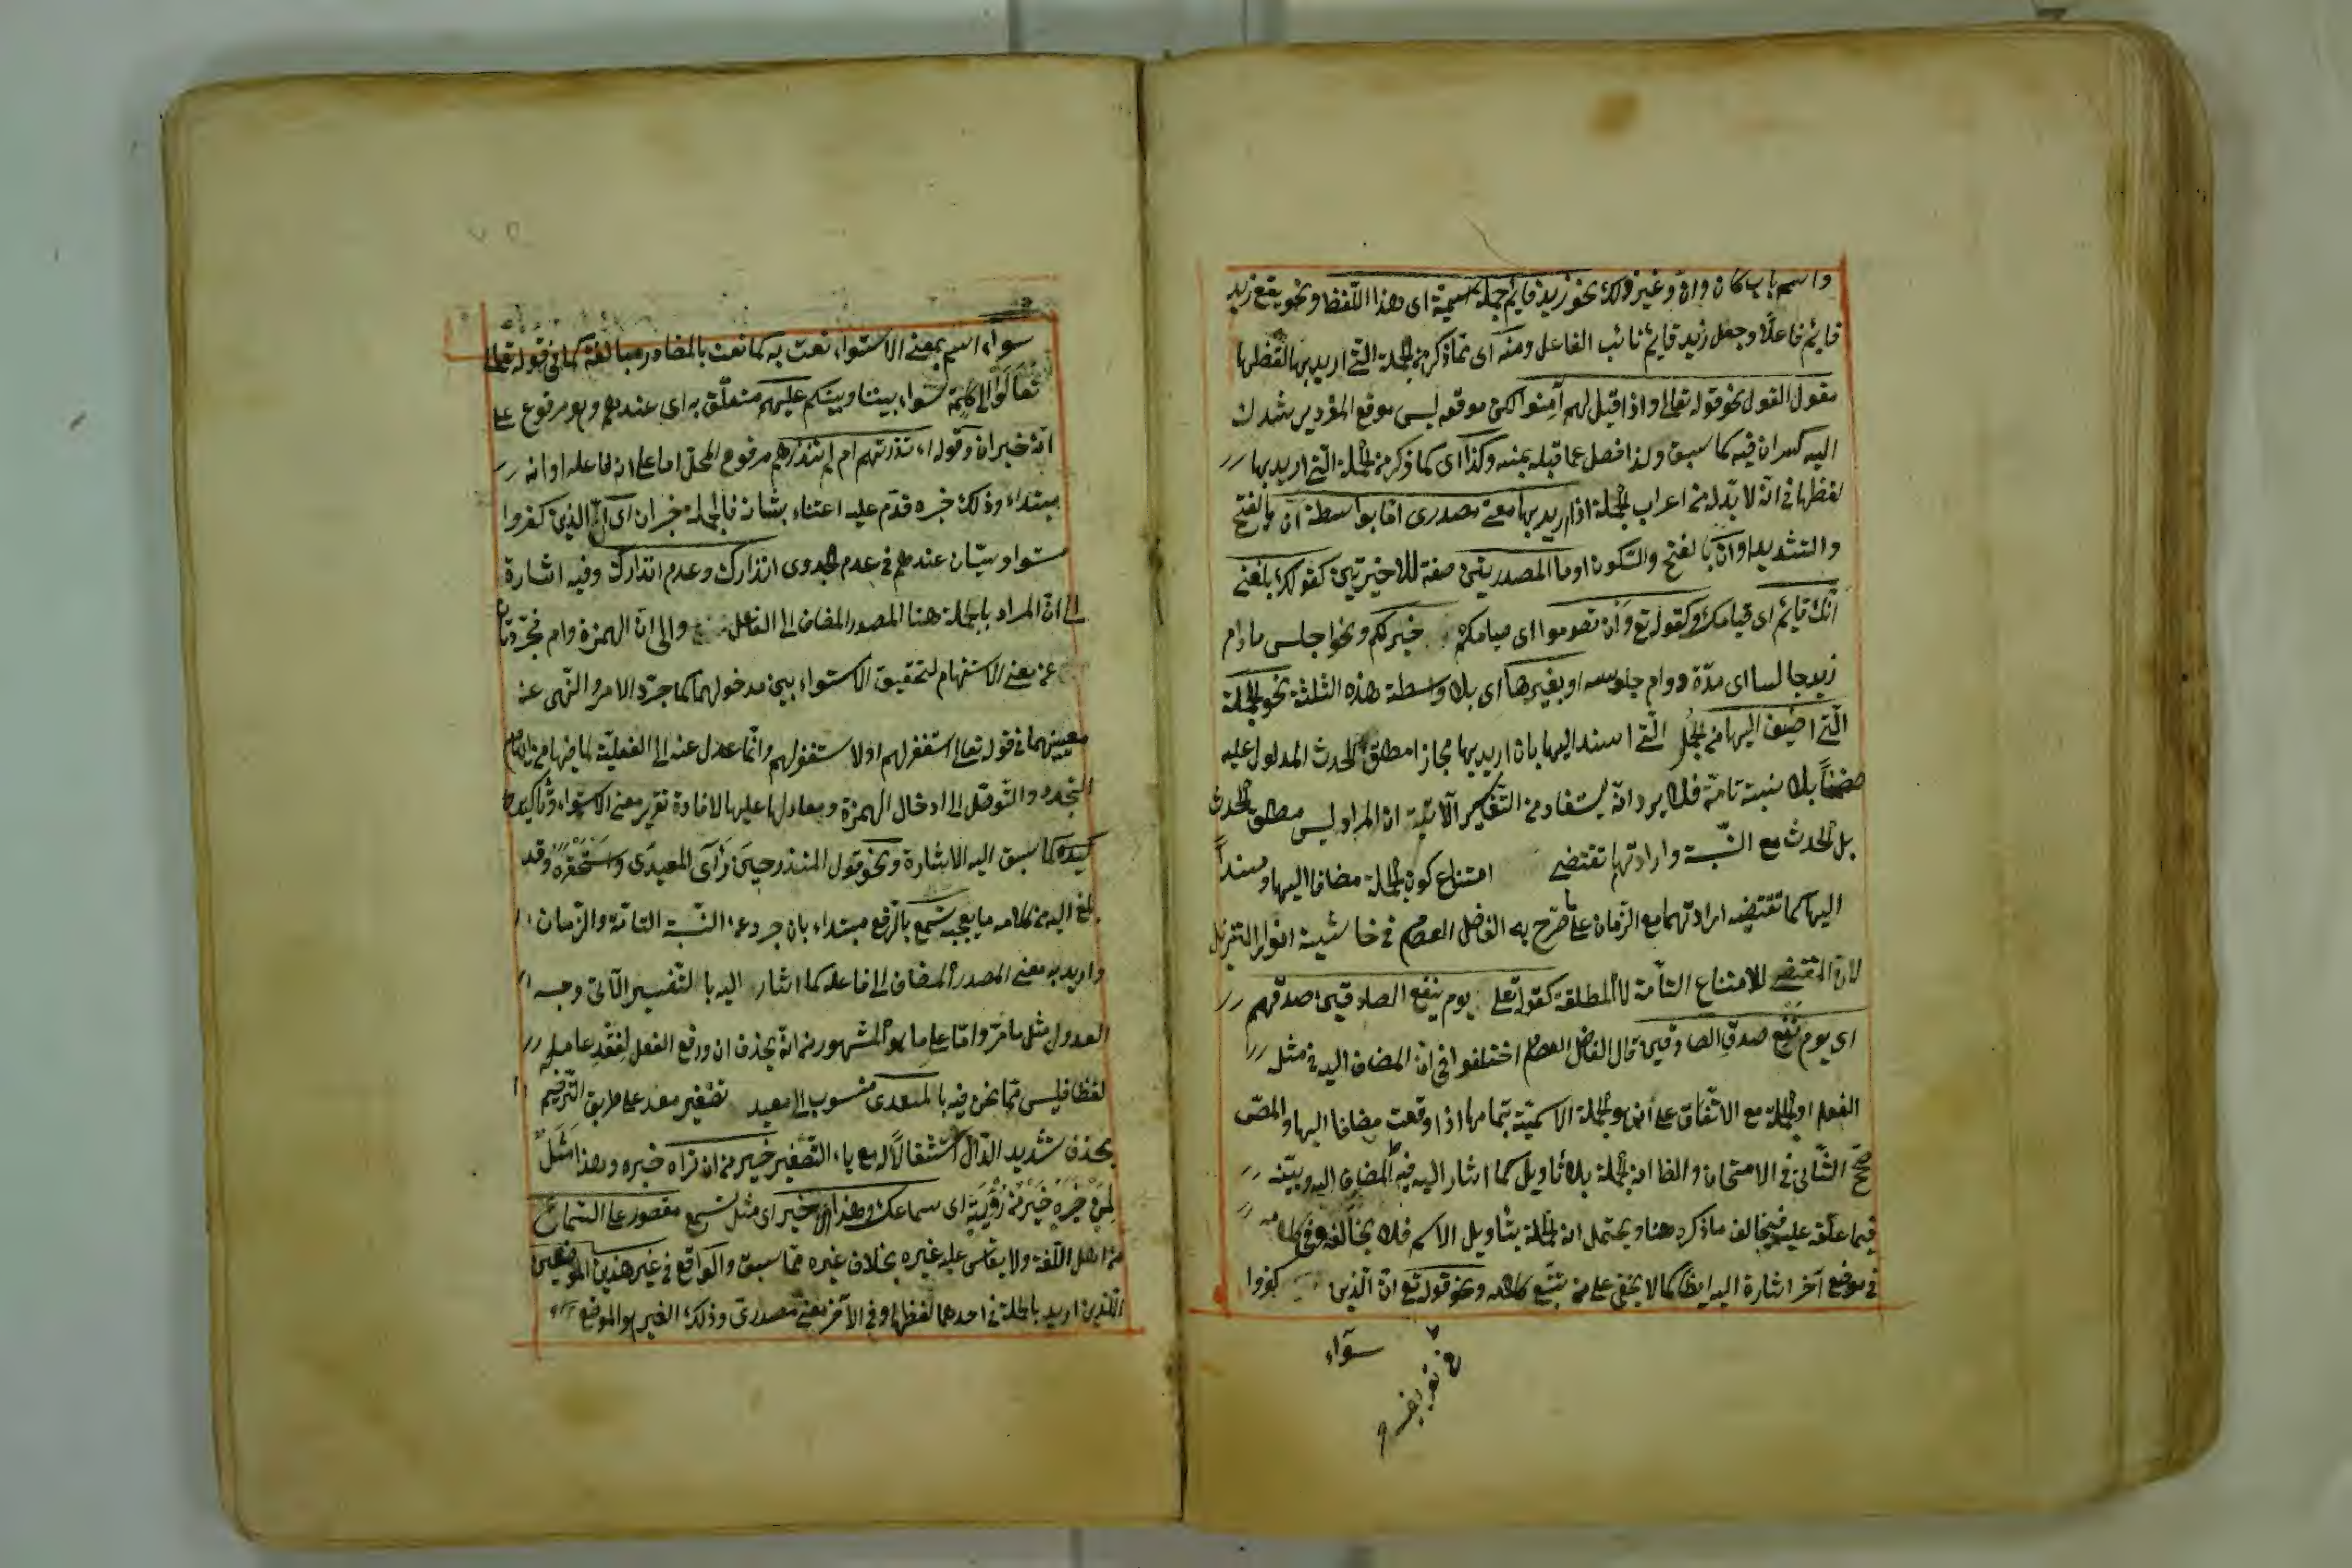 واسم باب كان وان وغير ذلك نحو زيد قائم جملة اسمية اى هذا اللفظ ونحو يقع زيد
قائم فاعلًا وجعل زيد قائم نائب الفاعل ومنه اى مما ذكر من الجملة التى اريد بها لفظها
مقول القول نحو قوله تعالى واذا قيل لهم آمنوا لكن موقعه ليس موقع المفرد
اليه كسر ان فيه كما سبق ولذا فصل عما قبله بمنه وكذا اى كما ذكر من الجملة التى اريد بها
لفظها فى انه لا بد له من اعراب الجملة اذا اريد بها معنى مصدرى اما بواسطة انّ بالفتح
والتشديد او ان بالفتح والسكون او ما المصدريتين صفة للاخيرتين كقولك بلغنى
انّك قائم اى قيامك وكقوله تع وان تصوموا اى صيامكم خير لكم ونحو اجلس مادام
زيد جالسا اى مدّة دوام جلوسه او بغيرها اى بلا واسطة هذه الثلثة نحو الجملة
الّتى اضيف اليها من الجمل الّتى اسند اليها بان اريد بها مجازا مطلق الحدث المدلول عليه
ضمناً بلا نسبة تامّة فلا يرد انّه يستفاد من التفسير الآتية ان المراد ليس مطلق الحدث
بل الحدث مع النّسبة وارادتهما تقتضى امتناع كون الجملة مضافا اليها ومسنداً
اليها كما تقتضيه ارادتهما مع الزمان على ما صرّح به الفاضل العصام فى حاشية انوار التنزيل
لان المقتضى للامتناع التامّة لا المطلقة كقوله تعلى يوم ينفع الصادقين صدقهم
اى يوم نفع صدق الصادقين قال الفاضل العصام اختلفوا فى ان المضاف اليه فى مثل
الفعل او الجملة مع الاتّفاق على انه هو الجملة الاسميّة بتمامها اذا وقعت مضافا اليها والمصّ
صحّح الثّانى فى الامتحان والظا انه الجملة بلا تأويل كما اشار اليه فيه المضاف اليه وبيّنه
فيما علّقه عليه فيخالف ما ذكره هنا ويحتمل انه الجملة بتأويل الاسم فلا يخالفه وفى كلامه
فى موضع آخر اشارة اليه ايضًا كما لا يخفى على من تتبّع كلامه ونحو قوله تع انّ الّذين كفروا
سوآء
سواء اسم بمعنى الاستواء نعت به كما نعت بالمصادر مبالغة كما فى قوله تعالى
تعالوا الى كلمة سواء بيننا وبينكم عليهم متعلّق به اى عندهم وهو مرفوع على
انّه خبر ان وقوله ءانذرتهم ام لم تنذرهم مرفوع المحل اما على انه فاعله او انه
مبتداء وذلك خبره قدّم عليه اعتناء بشانه فالجملة خبر ان اى انّ الذين كفروا
مستو وسيّان عندهم فى عدم الجدوى انذارك وعدم انذارك وفيه اشارة
الى ان المراد بالجملة هنا المصدر المضاف الى الفاعل والى انّ الهمزة وام مجرّدتان
عن معنى الاستفهام لتحقيق الاستواء بين مدخولهما كما جرّد الامر والنهى عن
معنييهما فى قوله تعالى استغفر لهم او لا تستغفر لهم وانّما عدل عنه الى الفعليّة لما فيها من ايهام
التجدد والتّوصّل الى ادخال الهمزة ومعادلها عليها لافادة تقرير معنى الاستواء وتأكيده
كما سبق اليه الاشارة ونحو قول المنذر حين رأى المعيدى واستحقره وقد
بلغ اليه من كلامه ما يعجبه تسمع بالرّفع مبتداء بان جرد عن النّسبة التامّة والزّمان
واريد به معنى المصدر المضاف الى فاعله كما اشار اليه بالتفسير الآتى وجه
العدول مثل ما مرّ وامّا على ما هو المشهور من انّه بحذف ان ورفع الفعل لفقد عامله
لفظا فليس ممّا نحن فيه بالمعيدى منسوب الى معيد تصغير معد على طريق الترخيم
بحذف تشديد الدّال استثقالًا له مع ياء التصغير خير من ان تراه خبره وهذا مثل
لمن خبره خير من رؤيته اى سماعك وهذا الاخير اى مثل تسمع مقصور على السّماع
من اهل اللّغة ولا يقاس عليه غيره بخلاف غيره ممّا سبق والواقع فى غير هذين الموضعين
اللذين اريد بالجملة فى احدهما لفظها وفى الآخر معنى مصدرىّ وذلك الغير هو الموضع